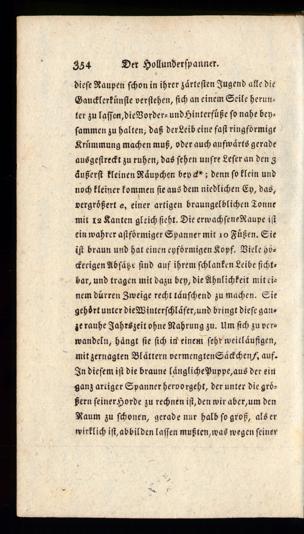 354 Der Hollunderspanner.
dieſe Raupen ſchon in ihrer zärteſten Jugend alle die
Gaucklerkünſte verſtehen, ſich an einem Seile herun-
ter zu laſſen, die Vorder- und Hinterfüße ſo nahe bey-
ſammen zu halten, daß der Leib eine faſt ringförmige
Krümmung machen muß, oder auch aufwärts gerade
ausgeſtreckt zu ruhen, das ſehen unſre Leſer an den 3
äußerſt kleinen Räupchen bey d*; denn ſo klein und
noch kleiner kommen ſie aus dem niedlichen Ey, das,
vergrößert e, einer artigen braungelblichen Tonne
mit 12 Kanten gleich ſieht. Die erwachſene Raupe iſt
ein wahrer aſtförmiger Spanner mit 10 Füßen. Sie
iſt braun und hat einen eyförmigen Kopf. Viele hö-
ckerigen Abſätze ſind auf ihrem ſchlanken Leibe ſicht-
bar, und tragen mit dazu bey, die Ähnlichkeit mit ei-
nem dürren Zweige recht täuſchend zu machen. Sie
gehört unter die Winterſchläfer, und bringt dieſe gan-
ze rauhe Jahrszeit ohne Nahrung zu. Um ſich zu ver-
wandeln, hängt ſie ſich in einem ſehr weitläuftigen,
mit zernagten Blättern vermengten Säckchen f, auf.
In dieſem iſt die braune längliche Puppe, aus der ein
ganz artiger Spanner hervorgeht, der unter die grö-
ßern ſeiner Horde zu rechnen iſt, den wir aber, um den
Raum zu ſchonen, gerade nur halb ſo groß, als er
wirklich iſt, abbilden laſſen mußten, was wegen ſeiner